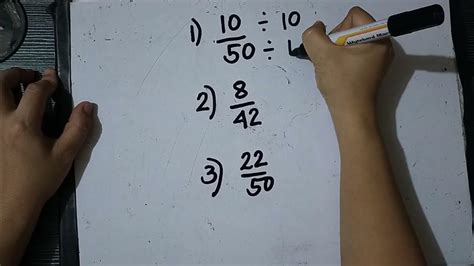 1) 10 ÷ 10
50 ÷
2) 8
42
3) 22
50